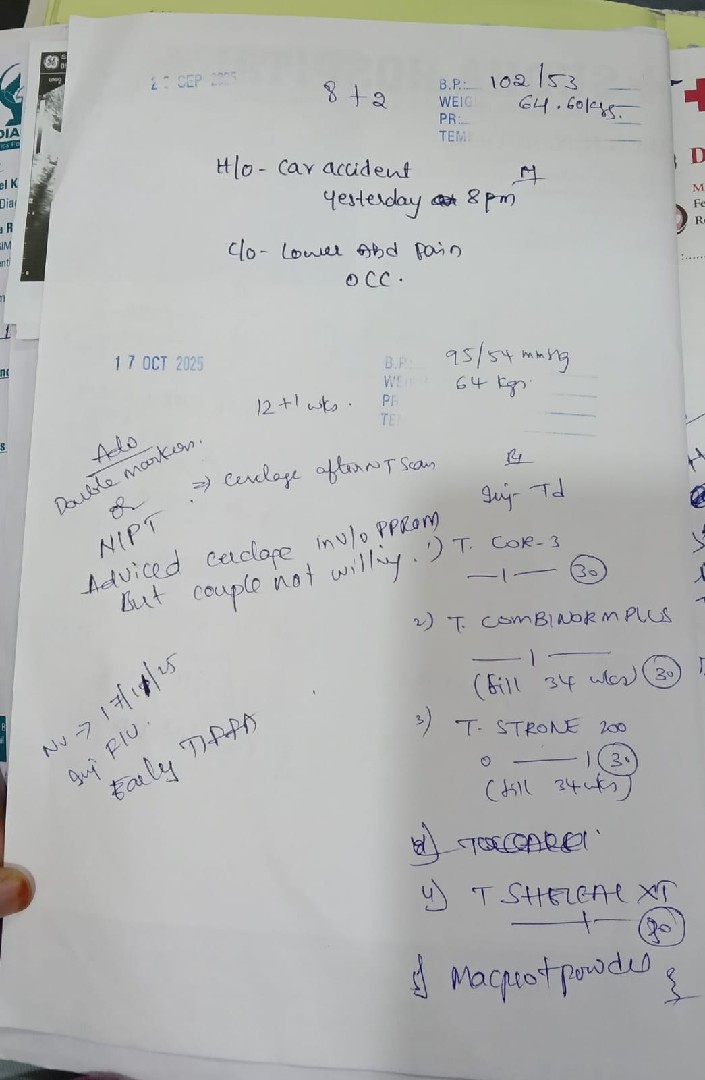 SEP
8+2
B.P.:- 102/53
WEIG 64.60kgs.
PR:-
TEM
H/o - Car accident
yesterday 8pm
c/o - Lower Abd Pain
occ.
17 OCT 2025
B.P. 95/54 mmHg
64 kgs.
12+1 wks.
PR
TE
Double marker.
or
NIPT
⇒ cerclage after NT Scan
Adviced cerclage in v/o PPROM
But couple not willing.
Inj- Td
1) T. COR-3
—1— 30
2) T. COMBINORM PLUS
—1—
(till 34 wks) 30
3) T. STRONE 200
0 —1 30
(till 34wks)
4) T SHELCAL XT
—+— 30
5) Macprot powder
NV → 17/11/25
Inj FLU.
Early TIFFA